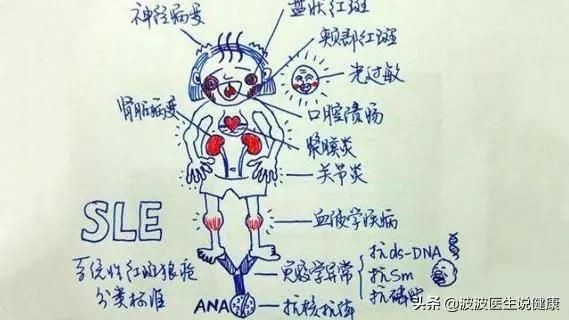 神经病变
盘状红斑
颊部红斑
光过敏
肾脏病变
口腔溃疡
浆膜炎
关节炎
SLE
血液学疾病
系统性红斑狼疮
分类标准
免疫学异常
抗ds-DNA
抗Sm
抗磷脂
ANA
抗核抗体
头条 @波波医生说健康